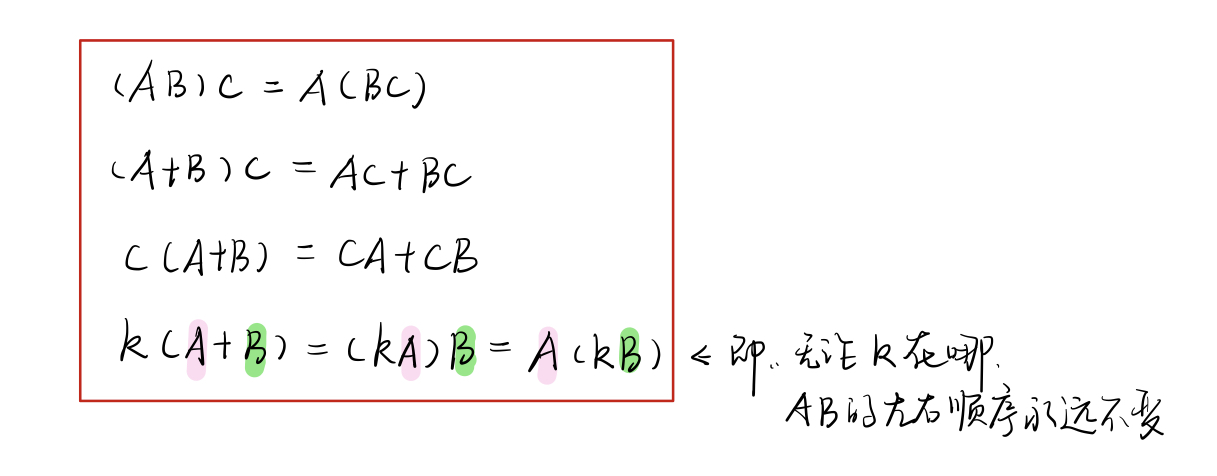 (AB)C = A(BC)
(A+B)C = AC+BC
C(A+B) = CA+CB
k(A+B) = (kA)B = A(kB) ← 即: 无论k在哪.
AB的左右顺序永远不变